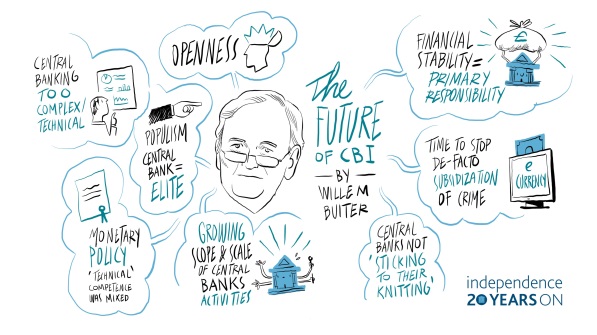 CENTRAL
BANKING
TOO
COMPLEX/
TECHNICAL
OPENNESS
POPULISM
CENTRAL
BANK =
ELITE
The
FUTURE
OF CBI
BY
WILLEM
BUITER
FINANCIAL
STABILITY =
PRIMARY
RESPONSIBILITY
£
TIME TO STOP
DE-FACTO
SUBSIDIZATION
OF CRIME
e
CURRENCY
MONETARY
POLICY
'TECHNICAL'
COMPETENCE
WAS MIXED
GROWING
SCOPE & SCALE
OF CENTRAL
BANKS
ACTIVITIES
CENTRAL
BANKS NOT
'STICKING
TO THEIR
KNITTING'
independence
20 YEARS ON